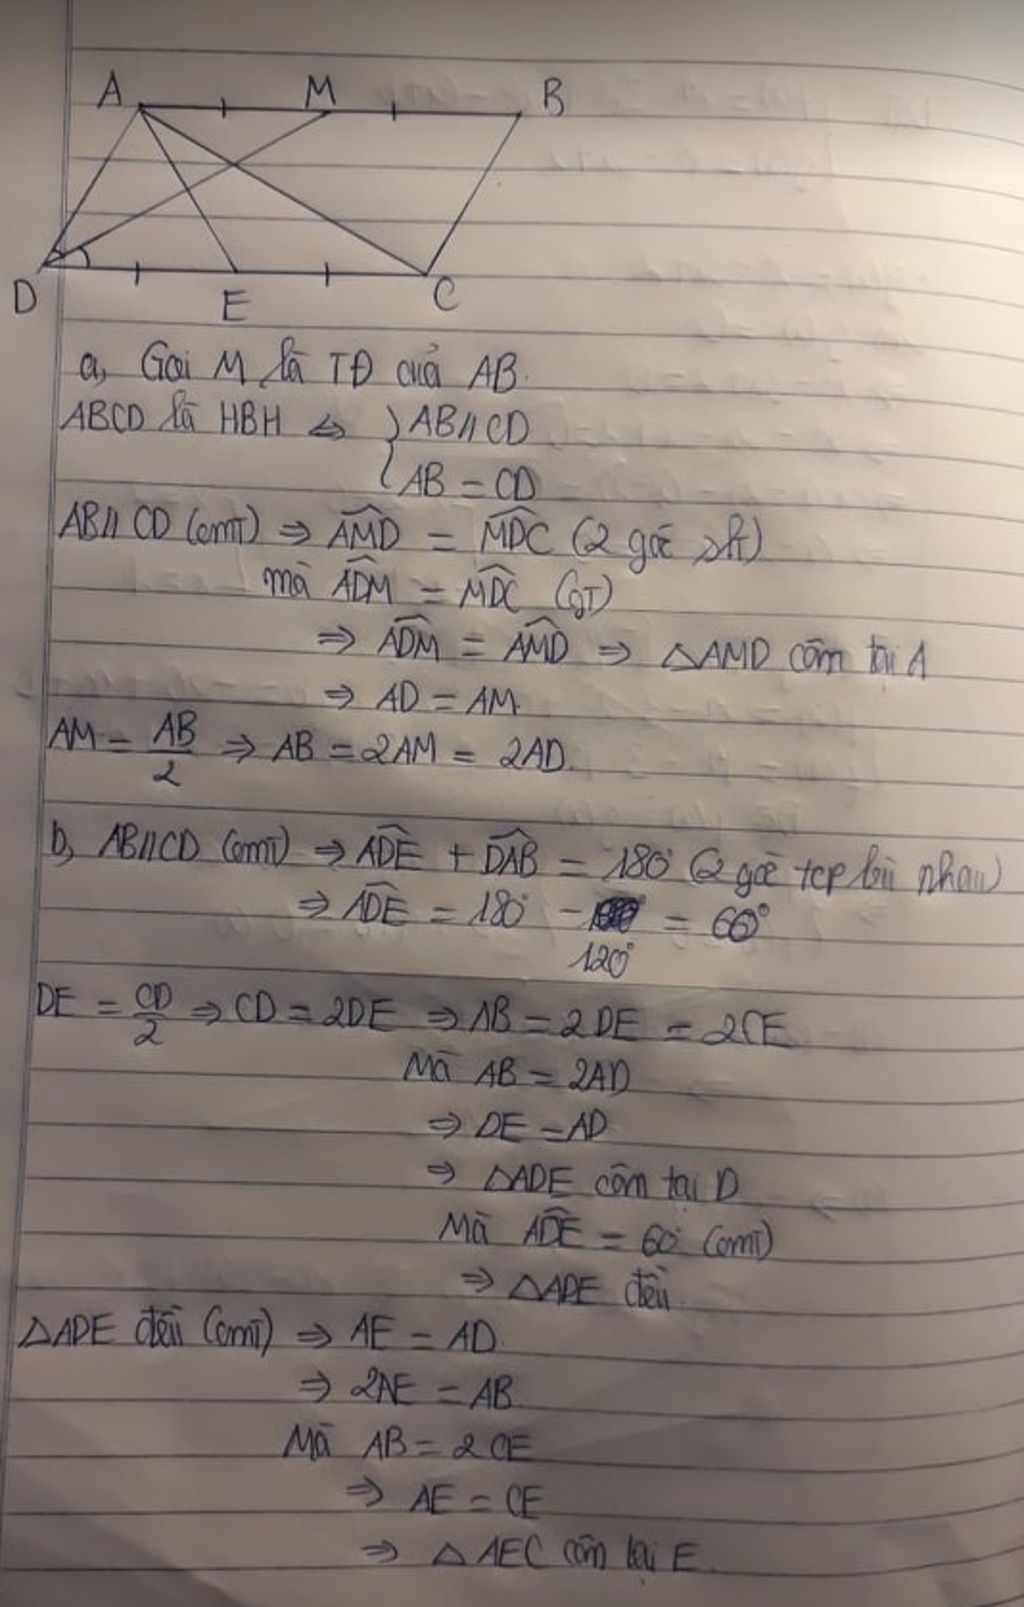 A M B
D E C
a, Gọi M là TĐ của AB.
ABCD là HBH ⇔ { AB // CD
AB = CD
AB // CD (cmt) ⇒ AMD = MDC (2 góc slt)
mà ADM = MDC (gt)
⇒ ADM = AMD ⇒ △AMD cân tại A
⇒ AD = AM
AM = AB/2 ⇒ AB = 2AM = 2AD.
b, AB // CD (cmt) ⇒ ADE + DAB = 180° (2 góc tcp bù nhau)
⇒ ADE = 180° - = 60°
120°
DE = CD/2 ⇒ CD = 2DE ⇒ AB = 2DE = 2CE
Mà AB = 2AD
⇒ DE = AD
⇒ △ADE cân tại D
Mà ADE = 60° (cmt)
⇒ △ADE đều.
△ADE đều (cmt) ⇒ AE = AD.
⇒ 2AE = AB
Mà AB = 2CE
⇒ AE = CE
⇒ △AEC cân tại E.